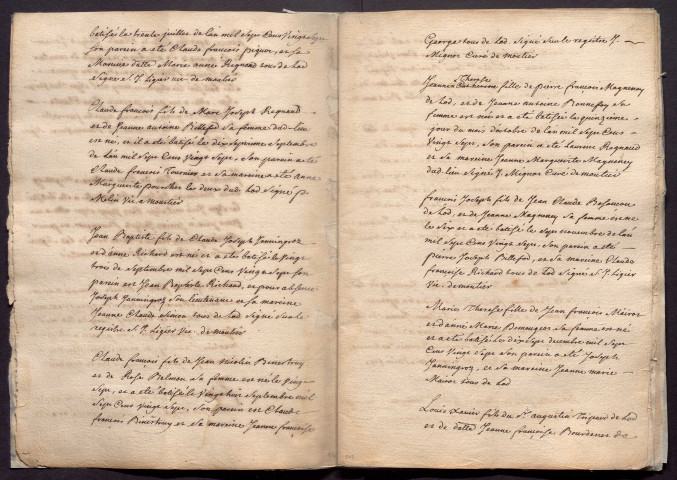 batisé le trente juillet de lan mil sept Cens Vingt sept
son parein a eté Claude francois pignon, et sa
Mareine dalle Marie anne Regnaud tous de Lod
Signé S. J. ligier vic. de moutier
Claude francois fils de Marc Joseph Regnaud
et de Jeanne antoine Billefod sa femme dud. lieu
est né, et il a eté batisé le dix septieme Septembre
de lan mil Sept Cens Vingt Sept, Son parein a eté
Claude francois Tournier et sa mareine a eté anne
Marguerite les deux dud. Lod Signé p.
Molin Vic. a moustier
Jean Baptiste fils de Claude Joseph Janningroz
et danne Richard est né et a eté batisé le Vingt
trois de Septembre mil Sept Cens Vingt Sept son
parein est Jean Baptiste Richard, et pour absence
Joseph Janningroz Son lieutenant et sa mareine
Jeanne Claude tous de Lod Signé Sur le
registre S. J. Ligier Vic. de moutier
Claude francois fils de Jean Nicolin Binetruy
et de Rose Belmon Sa femme est né le Vingt
Sept, et a eté batisé le Vingt huit Septembre mil
Sept Cens Vingt Sept, Son parein est Claude
francois Binetruy et Sa mareine Jeanne francoise
George tous de Lod. Signé Sur le registre J.
Mignot Curé de moutier
Jeanne Catherine Therese fille de pierre francois Magnenay
de Lod, et de Jeanne antoine Bonnefoy Sa
femme est née et a eté batisée le quinzieme
jour du mois doctobre de lan mil Sept Cens
Vingt Sept, Son parein a eté Laurent Regnaud
et Sa mareine Jeanne Marguerite Magnenay
dud. lieu Signé J. Mignot Curé de moutier
francois Joseph fils de Jean Claude Besancon
de Lod, et de Jeanne Magnenay Sa femme est né
le Sept et a eté batisé le Sept novembre de lan
mil Sept Cens Vingt Sept, Son parein a eté
pierre Joseph Billefod, et Sa mareine Claude
francoise Richard tous de Lod Signé S. J. Ligier
Vic. de moutier
Marie Therese fille de Jean francois Mairot
et danne Marie Sa femme est née
et a eté batisée le dix Sept decembre mil Sept
Cens Vingt Sept Son parein a eté Joseph
Janningroz, et Sa mareine Jeanne marie
Mairot tous de Lod
Louis Xavier fils du Sr. augustin Tripard de Lod
et de dalle Jeanne francoise Bourdenet Sa